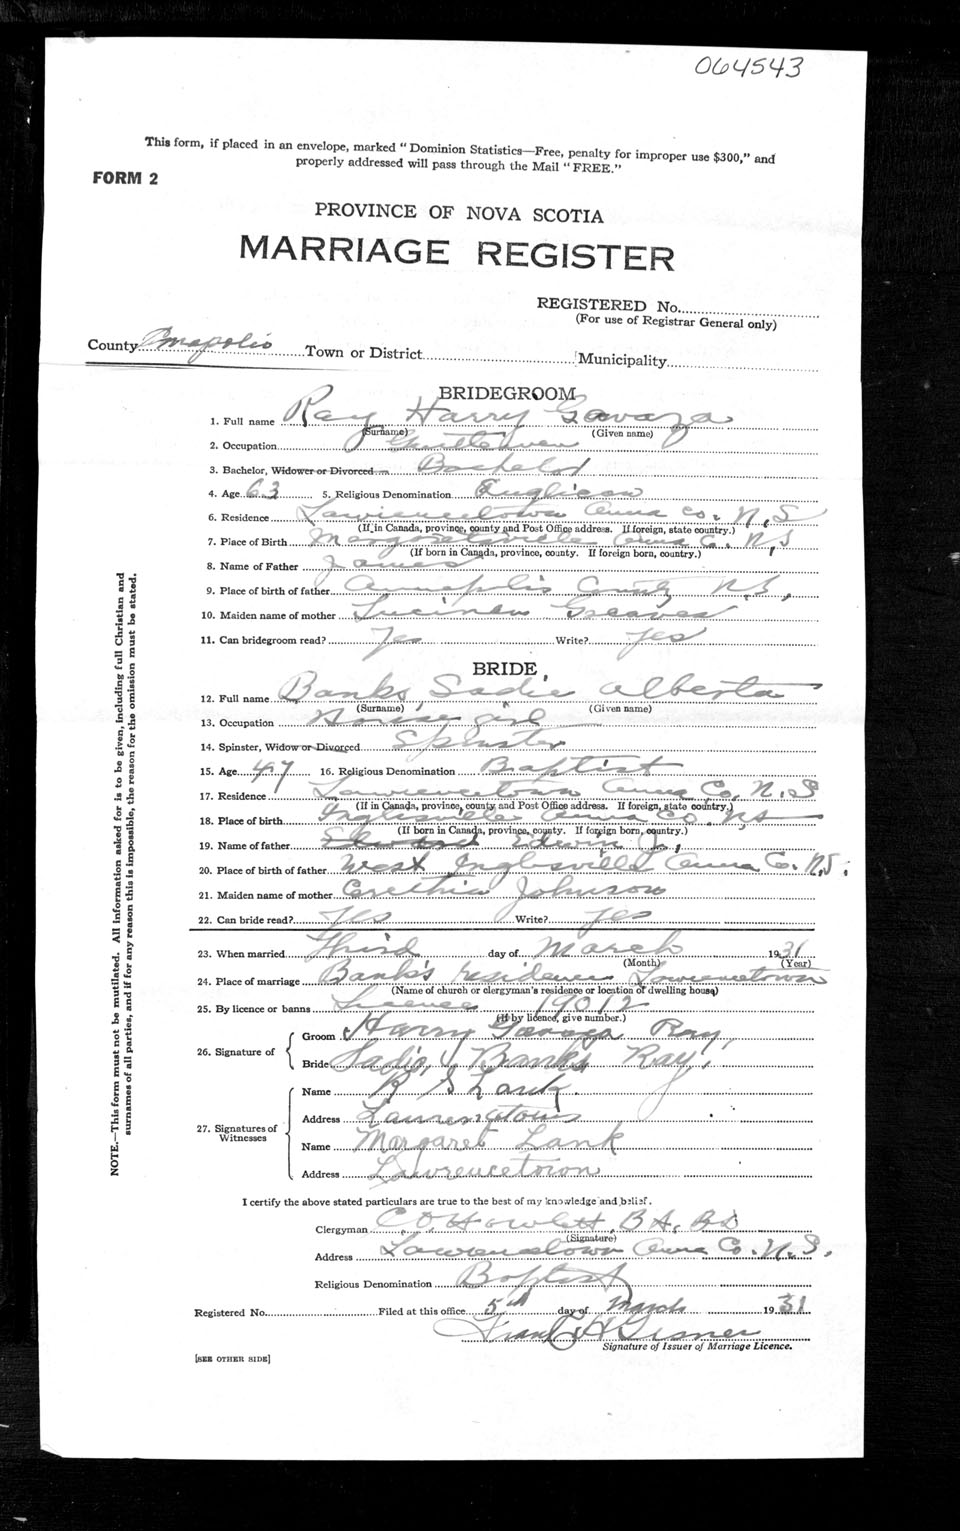 064543
This form, if placed in an envelope, marked "Dominion Statistics—Free, penalty for improper use $300," and
properly addressed will pass through the Mail "FREE."
FORM 2
PROVINCE OF NOVA SCOTIA
MARRIAGE REGISTER
REGISTERED No.
(For use of Registrar General only)
County Annapolis Town or District Municipality
BRIDEGROOM
1. Full name Ray Harry Gavaza
(Surname) (Given name)
2. Occupation Gentleman
3. Bachelor, Widower or Divorced Bachelor
4. Age 63 5. Religious Denomination Anglican
6. Residence Lawrencetown Anna Co. N,S
(If in Canada, province, county and Post Office address. If foreign, state country.)
7. Place of Birth Margaretsville Anna Co. N,S
(If born in Canada, province, county. If foreign born, country.)
8. Name of Father James
9. Place of birth of father Annapolis County N.S,
10. Maiden name of mother Greaves
11. Can bridegroom read? Yes Write? yes
BRIDE
12. Full name Banks, Sadie Alberta
(Surname) (Given name)
13. Occupation House girl
14. Spinster, Widow or Divorced Spinster
15. Age 47 16. Religious Denomination Baptist
17. Residence Lawrencetown Anna Co, N.S
(If in Canada, province, county and Post Office address. If foreign, state country.)
18. Place of birth Inglisville Anna Co. NS
(If born in Canada, province, county. If foreign born, country.)
19. Name of father Edward Edwin J.,
20. Place of birth of father West Inglisville Anna Co. N.S.
21. Maiden name of mother Johnson
22. Can bride read? Yes Write? yes
23. When married Third day of March 1931
(Month) (Year)
24. Place of marriage Bank's residence Lawrencetown
(Name of church or clergyman's residence or location of dwelling house)
25. By licence or banns Licence 19012
(If by licence, give number.)
26. Signature of
Groom Harry Gavaza Ray,
Bride Sadie Banks Ray,
27. Signatures of
Witnesses
Name R S Lank
Address Lawrencetown
Name Margaret Lank
Address Lawrencetown
I certify the above stated particulars are true to the best of my knowledge and belief.
Clergyman C O Howlett, BA, BD
(Signature)
Address Lawrencetown Anna Co. N.S.
Religious Denomination Baptist
Registered No. Filed at this office 5th day of March 1931
Signature of Issuer of Marriage Licence.
[SEE OTHER SIDE]
NOTE.—This form must not be mutilated. All information asked for is to be given, including full Christian and
surnames of all parties, and if for any reason this is impossible, the reason for the omission must be stated.